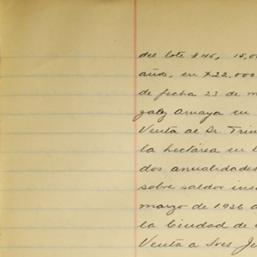 del lote #45, 15,0
año, en #22.000
de fecha 23 de m
galez Amaya en
Venta al Dr. Trin
la hectárea en l
dos anualidades
sobre saldos inso
marzo de 1926 a
la Ciudad de
Venta a Ives Je